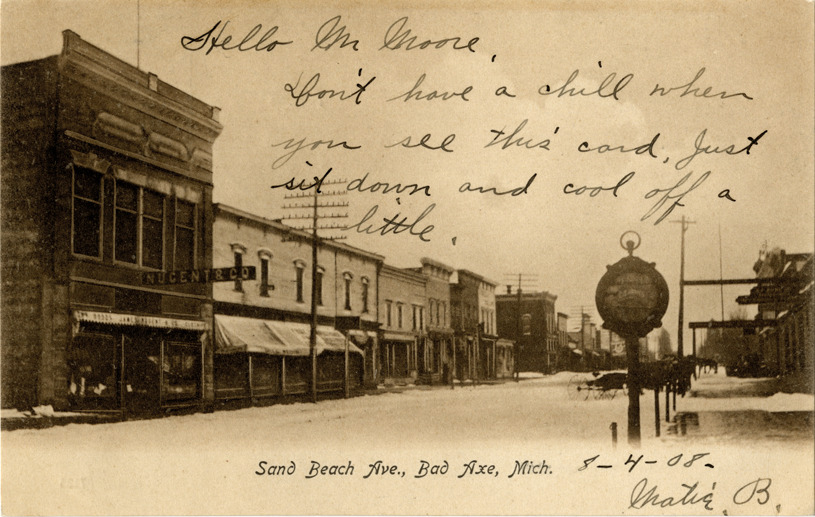 Hello Mr Moore,
Don't have a chill when
you see this card, Just
sit down and cool off a
little.
NUGENT & CO
Sand Beach Ave., Bad Axe, Mich.
8-4-08-
B.